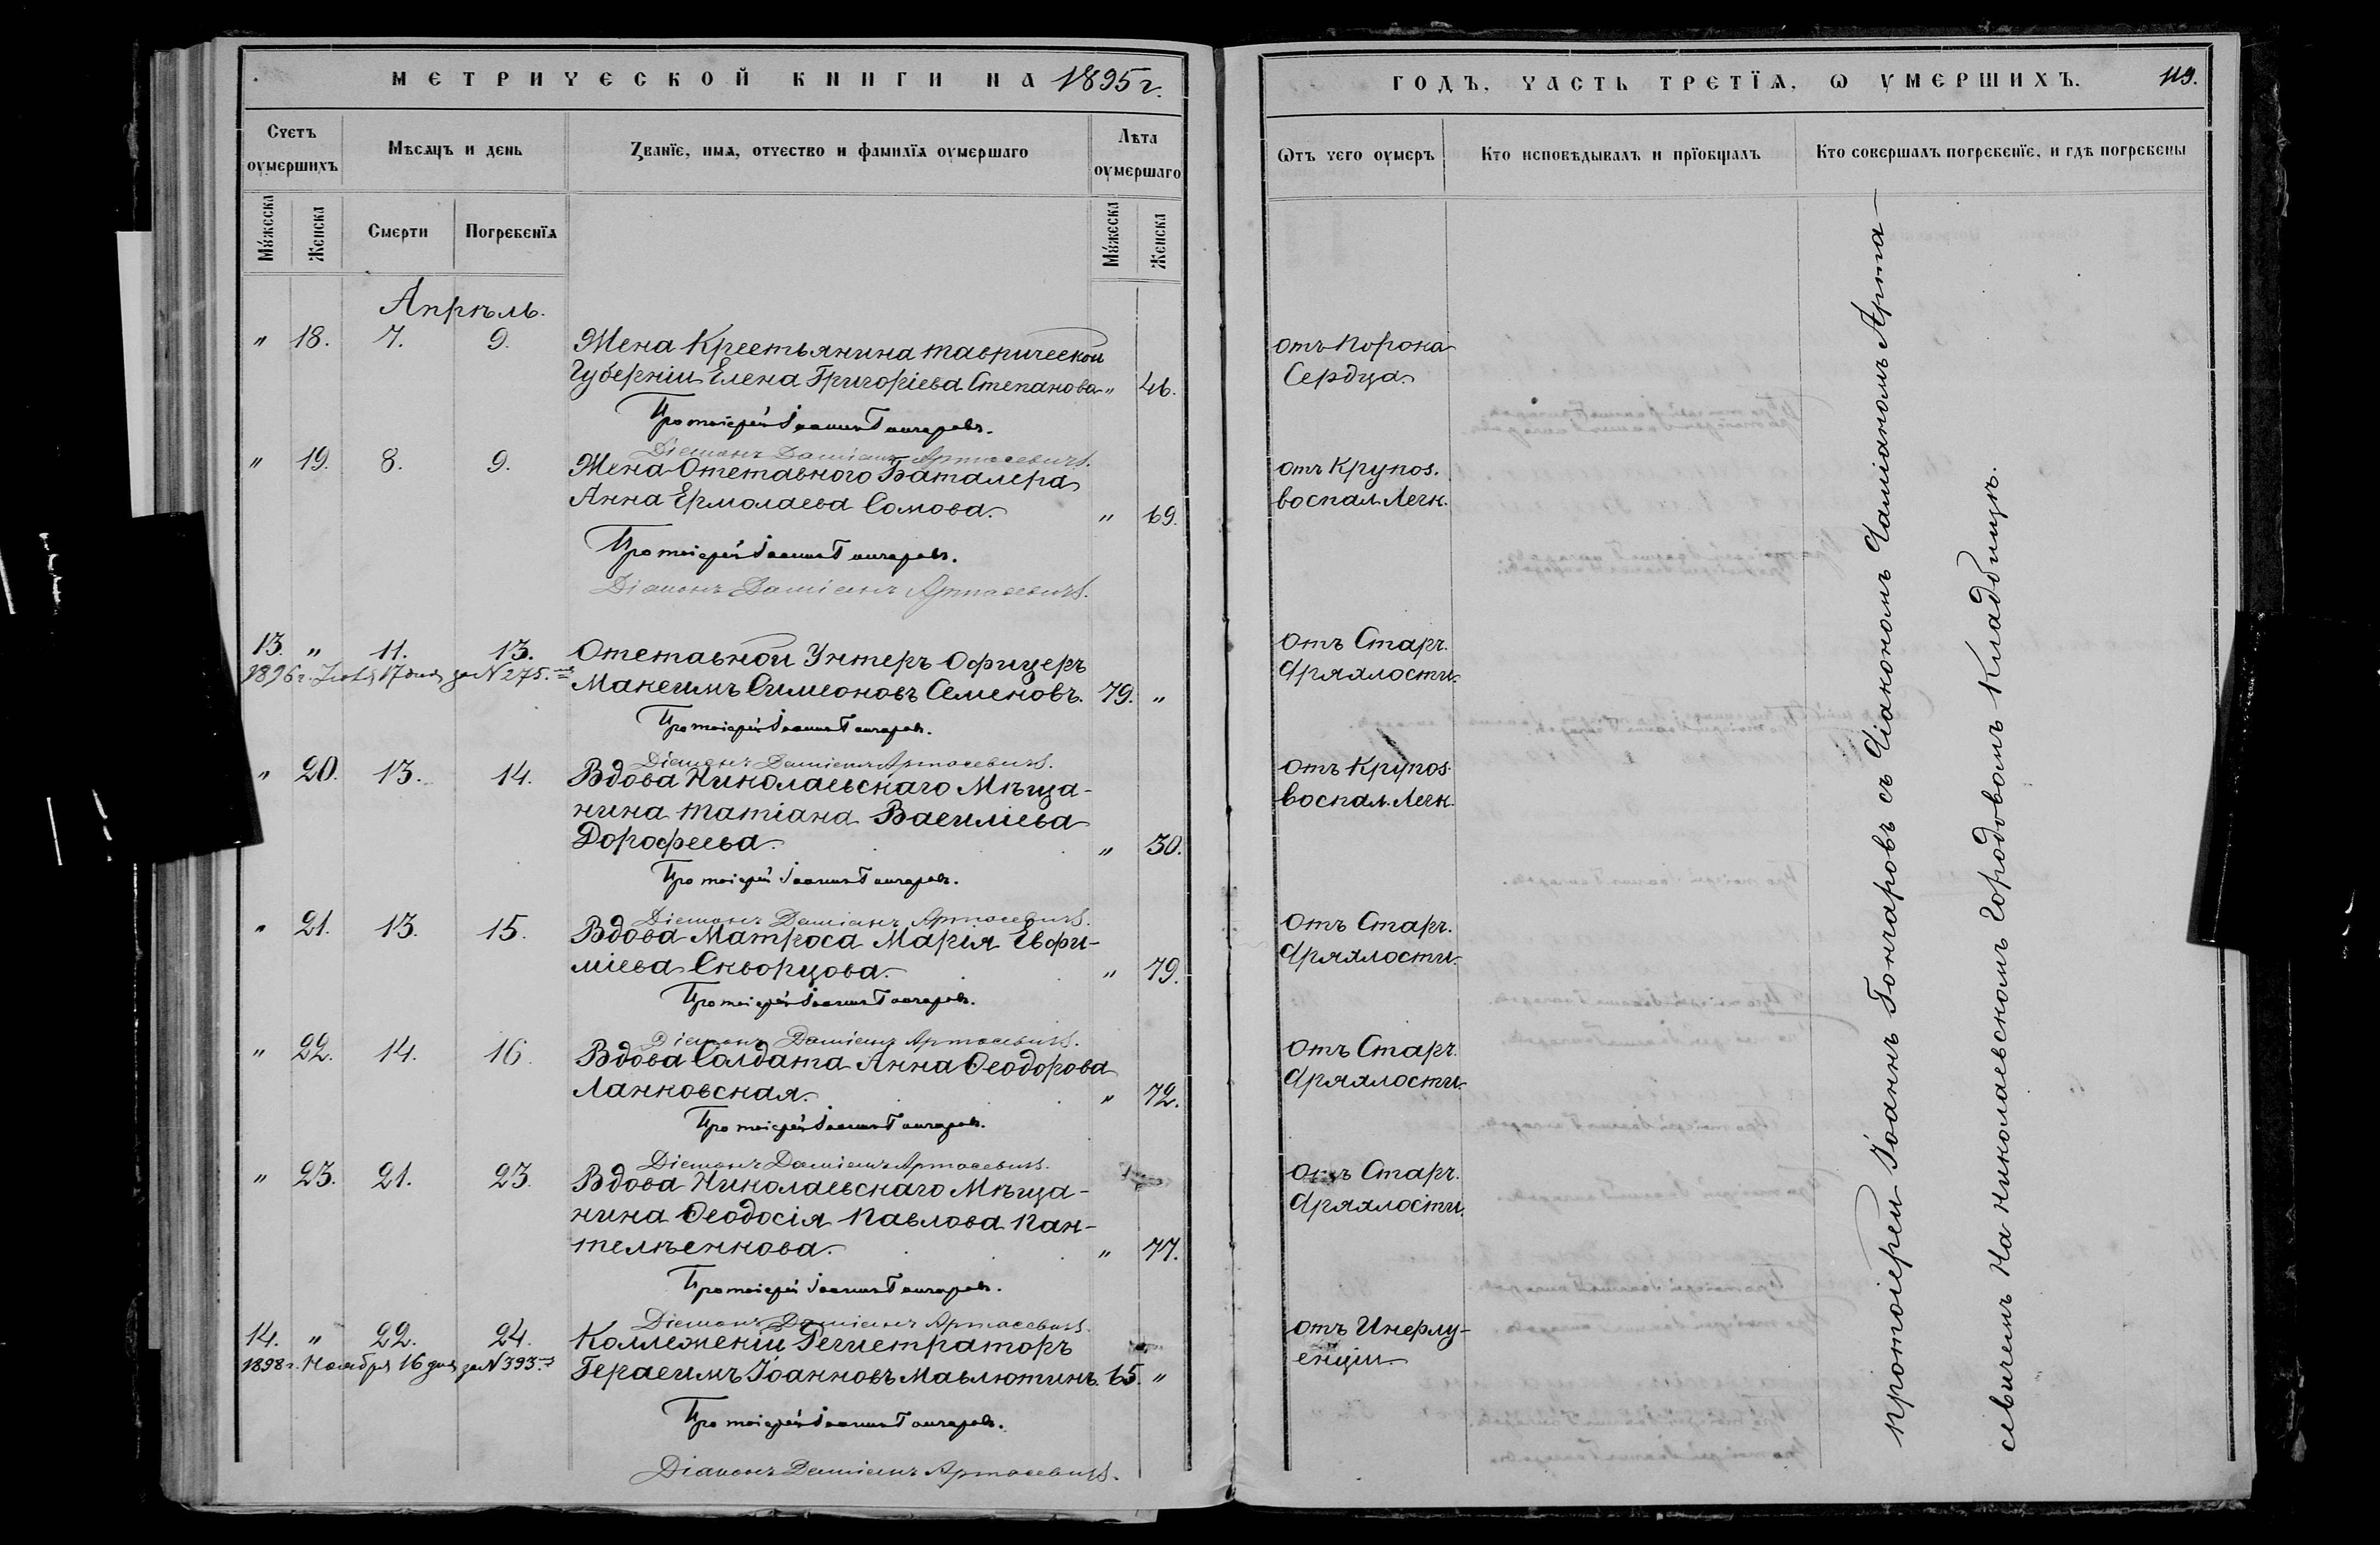 МЕТРИЧЕСКОЙ КНИГИ НА 1895 г.
Счетъ оумершихъ
Мѣсяцъ и день
Званїе, имѧ, отчество и фамилїѧ оумершаго
Лѣта оумершаго
Мꙋжеска
Женска
Смерти
Погребенїѧ
Мꙋжеска
Женска
Апрѣль.
" 18. 7. 9. Жена Крестьянина Таврической
Губерніи Елена Григоріева Степанова " 46.
Протоіерей Іоаннъ Гончаровъ.
Діаконъ Даміанъ Артасевичъ.
" 19. 8. 9. Жена Отставного Баталера
Анна Ермолаева Сомова. " 69.
Протоіерей Іоаннъ Гончаровъ.
Діаконъ Даміанъ Артасевичъ.
13. " 11. 13. Отставной Унтеръ Офицеръ
1896 г. 17 дня за N 275.
Максимъ Симеоновъ Семеновъ. 79. "
Протоіерей Іоаннъ Гончаровъ.
Діаконъ Даміанъ Артасевичъ.
" 20. 13. 14. Вдова Николаевскаго Мѣща-
нина Татіана Василіева
Дорофеева. " 30.
Протоіерей Іоаннъ Гончаровъ.
Діаконъ Даміанъ Артасевичъ.
" 21. 13. 15. Вдова Матроса Марія Евфи-
міева Скворцова. " 79.
Протоіерей Іоаннъ Гончаровъ.
Діаконъ Даміанъ Артасевичъ.
" 22. 14. 16. Вдова Солдата Анна Ѳеодорова
Ланковская. " 72.
Протоіерей Іоаннъ Гончаровъ.
Діаконъ Даміанъ Артасевичъ.
" 23. 21. 23. Вдова Николаевскаго Мѣща-
нина Ѳеодосія Павлова Пан-
телѣенкова. " 77.
Протоіерей Іоаннъ Гончаровъ.
Діаконъ Даміанъ Артасевичъ.
14. " 22. 24. Коллежскій Регистраторъ
1898 г. Ноября 16 дня за N 393.
Герасимъ Іоанновъ Мавлютинъ. 65. "
Протоіерей Іоаннъ Гончаровъ.
Діаконъ Даміанъ Артасевичъ.
ГОДЪ, ЧАСТЬ ТРЕТЇѦ, Ѡ УМЕРШИХЪ. 119.
Ѿтъ чего оумеръ
Кто исповѣдывалъ и прїобщалъ
Кто совершалъ погребенїе, и гдѣ погребены
отъ Порока
Сердца.
отъ Крупоз.
воспал. Легк.
Отъ Стар.
Дряхлости.
отъ Крупоз.
воспал. Легк.
Отъ Стар.
Дряхлости.
Отъ Стар.
Дряхлости.
Отъ Стар.
Дряхлости.
отъ Инфлу-
енціи.
Протоіерей Іоаннъ Гончаровъ съ Діакономъ Даміаномъ Арта
севичемъ На Николаевскомъ Городовомъ Кладбищѣ.